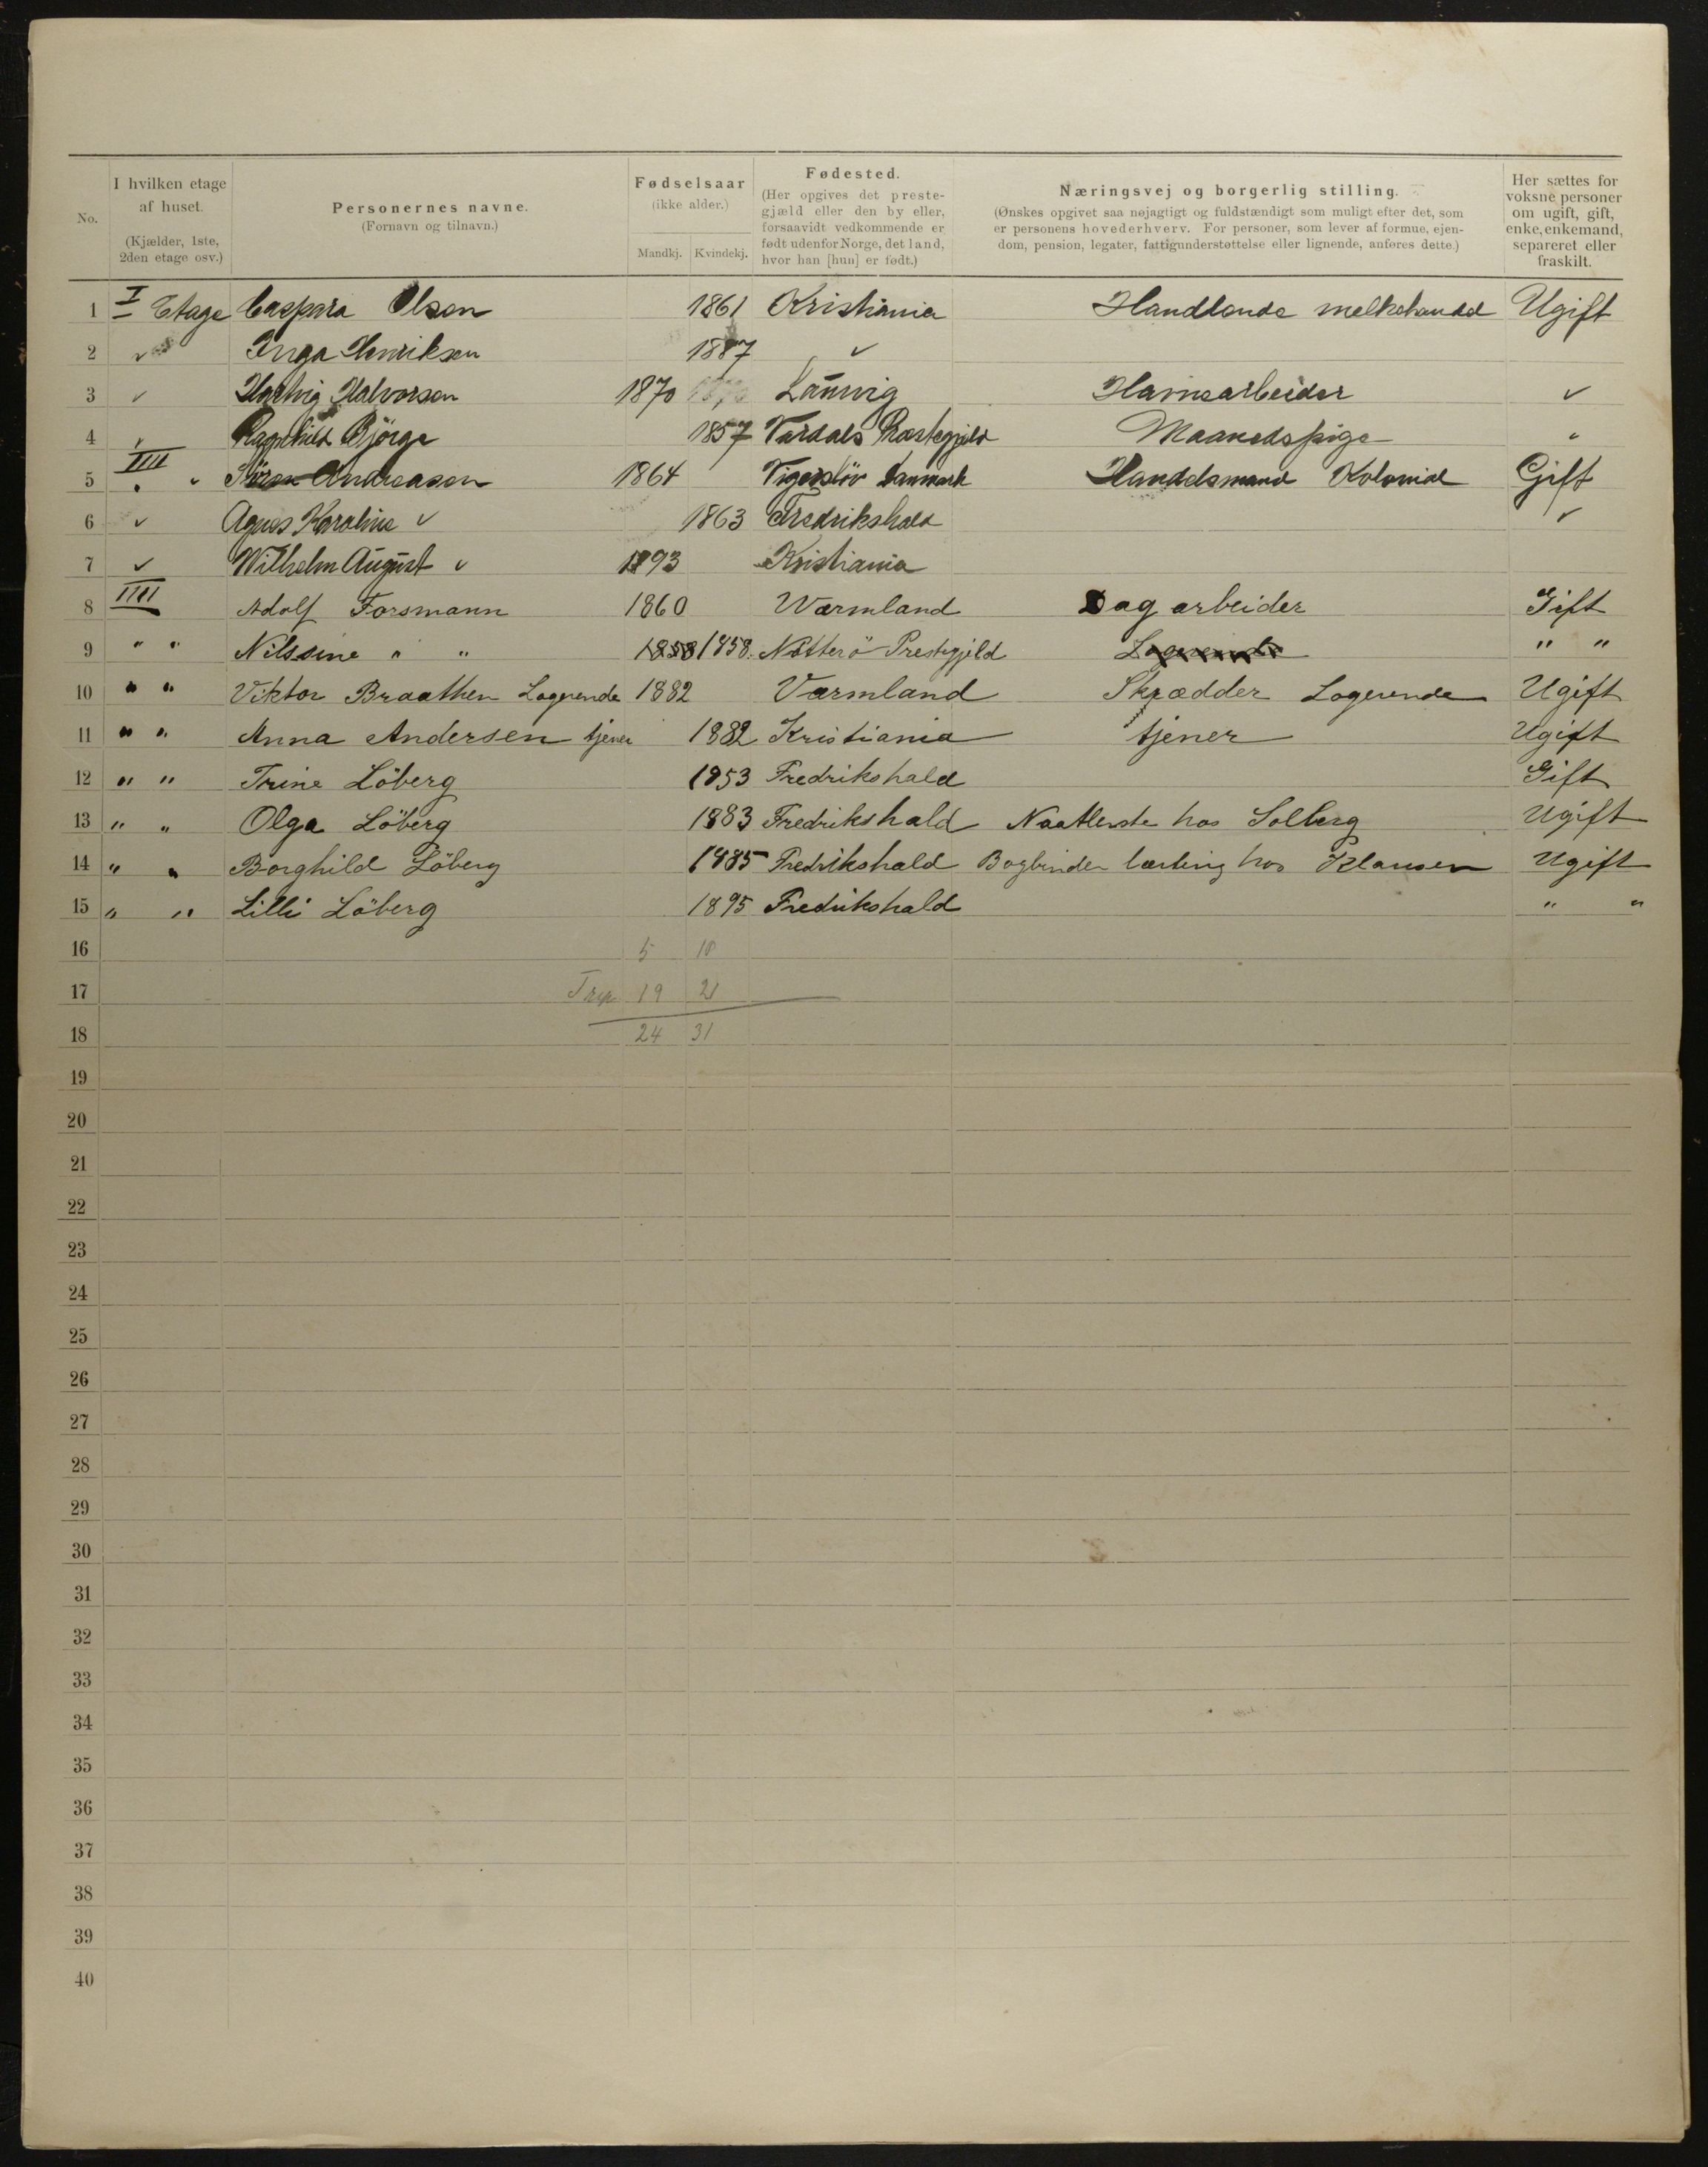 No. I hvilken etage af huset. (Kjælder, 1ste, 2den etage osv.) Personernes navne. (Fornavn og tilnavn.) Fødselsaar (ikke alder.) Mandkj. Kvindekj. Fødested. (Her opgives det prestegjæld eller den by eller, forsaavidt vedkommende er født udenfor Norge, det land, hvor han [hun] er født.) Næringsvej og borgerlig stilling. (Ønskes opgivet saa nøjagtigt og fuldstændigt som muligt efter det, som er personens hovederhverv. For personer, som lever af formue, ejendom, pension, legater, fattigunderstøttelse eller lignende, anføres dette.) Her sættes for voksne personer om ugift, gift, enke, enkemand, separeret eller fraskilt.
1 I Etage Caspara Olsen 1861 Kristiania Handlende melkehandel Ugift
2 ✓ Inga Henriksen 1887 ✓
3 ✓ Hartvig Halvorsen 1870 Laurvig Havnearbeider ✓
4 ✓ Ragnhild Bjørge 1857 Vardals Præstegjeld Maanedspige "
5 IIII " Sören Andreasen 1864 Danmark Handelsmand Kolonial Gift
6 ✓ Agnes Karoline ✓ 1863 Fredrikshald ✓
7 ✓ Wilhelm August ✓ 1893 Kristiania
8 IIII Adolf Forsmann 1860 Wærmland Dagarbeider Gift
9 " " Nilssine " " 1858 1858. Nötterö Prestegjeld Logerende " "
10 " " Viktor Braathen Logerende 1882 Værmland Skrædder Logerende Ugift
11 " " Anna Andersen tjener 1882 Kristiania tjener Ugift
12 " " Trine Löberg 1853 Fredrikshald Gift
13 " " Olga Löberg 1883 Fredrikshald hos Solberg Ugift
14 " " Borghild Löberg 1885 Fredrikshald Bogbinder lærling hos Klausen Ugift
15 " " Lilli Löberg 1895 Fredrikshald " "
16 5 10
17 19 21
18 24 31
19
20
21
22
23
24
25
26
27
28
29
30
31
32
33
34
35
36
37
38
39
40